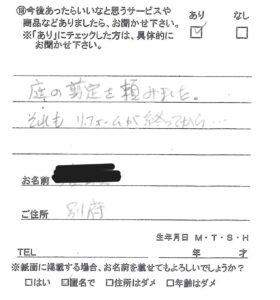 ⑩今後あったらいいなと思うサービスや
商品などありましたら、お聞かせ下さい。
※「あり」にチェックした方は、具体的に
お聞かせ下さい。
あり なし
☑ □
庭の剪定を頼みました。
それも リフォームが終ってから…
お名前
ご住所 別府
生年月日 M・T・S・H
TEL 年 才
※紙面に掲載する場合、お名前を載せてもよろしいでしょうか？
□はい ☑匿名で □住所はダメ □年齢はダメ